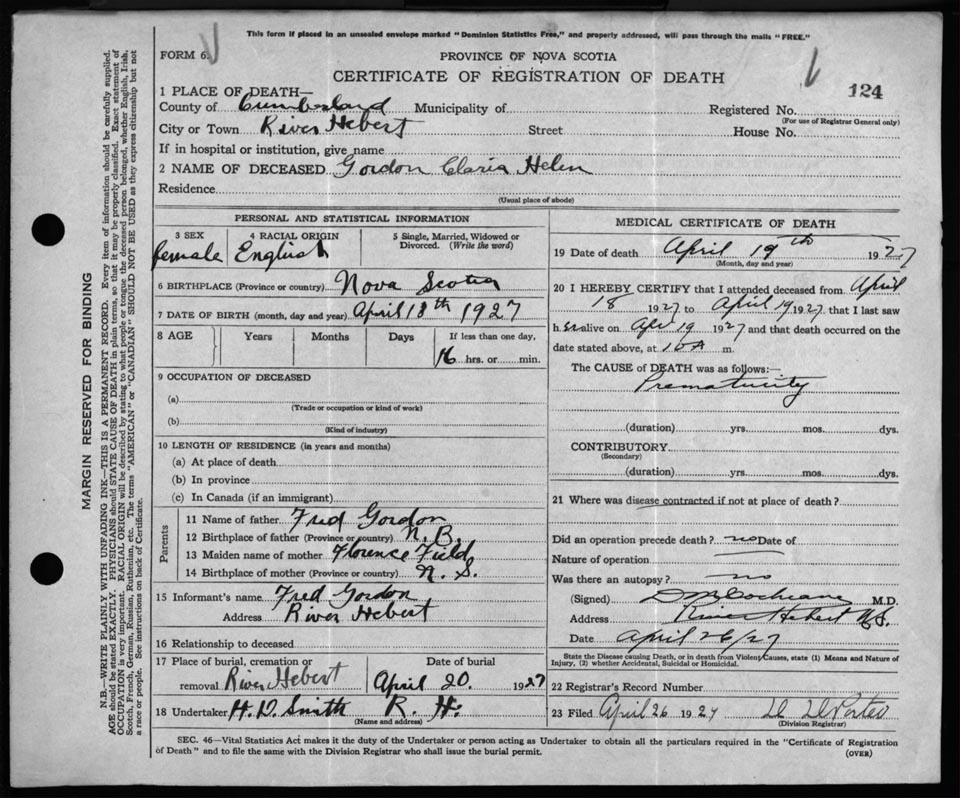 This form if placed in an unsealed envelope marked "Dominion Statistics Free," and properly addressed, will pass through the mails "FREE."
FORM 6. PROVINCE OF NOVA SCOTIA
CERTIFICATE OF REGISTRATION OF DEATH
124
1 PLACE OF DEATH—
County of Cumberland Municipality of Registered No.
(For use of Registrar General only)
City or Town River Hebert Street House No.
If in hospital or institution, give name
2 NAME OF DECEASED Gordon Claria Helen
Residence
(Usual place of abode)
PERSONAL AND STATISTICAL INFORMATION
3 SEX 4 RACIAL ORIGIN 5 Single, Married, Widowed or Divorced. (Write the word)
female English
6 BIRTHPLACE (Province or country) Nova Scotia
7 DATE OF BIRTH (month, day and year) April 18th 1927
8 AGE Years Months Days If less than one day,
16 hrs. or min.
9 OCCUPATION OF DECEASED
(a)
(Trade or occupation or kind of work)
(b)
(Kind of industry)
10 LENGTH OF RESIDENCE (in years and months)
(a) At place of death
(b) In province
(c) In Canada (if an immigrant)
Parents
11 Name of father Fred Gordon
12 Birthplace of father (Province or country) N.B.
13 Maiden name of mother Florence Field
14 Birthplace of mother (Province or country) N.S.
15 Informant's name Fred Gordon
Address River Hebert
16 Relationship to deceased
17 Place of burial, cremation or Date of burial
removal River Hebert April 20. 1927
18 Undertaker H.D. Smith R. H.
(Name and address)
MEDICAL CERTIFICATE OF DEATH
19 Date of death April 19th 1927
(Month, day and year)
20 I HEREBY CERTIFY that I attended deceased from April
18 1927 to April 19 1927 that I last saw
h er alive on Apr 19 1927 and that death occurred on
date stated above, at 10 A m.
The CAUSE of DEATH was as follows:—
Prematurity
(duration) yrs. mos. dys.
CONTRIBUTORY
(Secondary)
(duration) yrs. mos. dys.
21 Where was disease contracted if not at place of death?
Did an operation precede death? no Date of
Nature of operation
Was there an autopsy? no
(Signed) Cochrane M.D.
Address River Hebert N.S.
Date April 26/27
State the Disease causing Death, or in death from Violent Causes, state (1) Means and Nature of
Injury, (2) whether Accidental, Suicidal or Homicidal.
22 Registrar's Record Number
23 Filed April 26 1927
(Division Registrar)
SEC. 46—Vital Statistics Act makes it the duty of the Undertaker or person acting as Undertaker to obtain all the particulars required in the "Certificate of Registration
of Death" and to file the same with the Division Registrar who shall issue the burial permit.
(OVER)
MARGIN RESERVED FOR BINDING
N.B.—WRITE PLAINLY WITH UNFADING INK—THIS IS A PERMANENT RECORD. Every item of information should be carefully supplied.
AGE should be stated EXACTLY. PHYSICIANS should STATE CAUSE OF DEATH in plain terms, so that it may be properly classified. Exact statement of
OCCUPATION is very important. RACIAL ORIGIN will be described by stating to what people or tongue the deceased person belonged, whether English, Irish,
Scotch, French, German, Russian, Ruthenian, etc. The terms "AMERICAN" or "CANADIAN" SHOULD NOT BE USED as they express citizenship but not
a race or people. See instructions on back of Certificate.